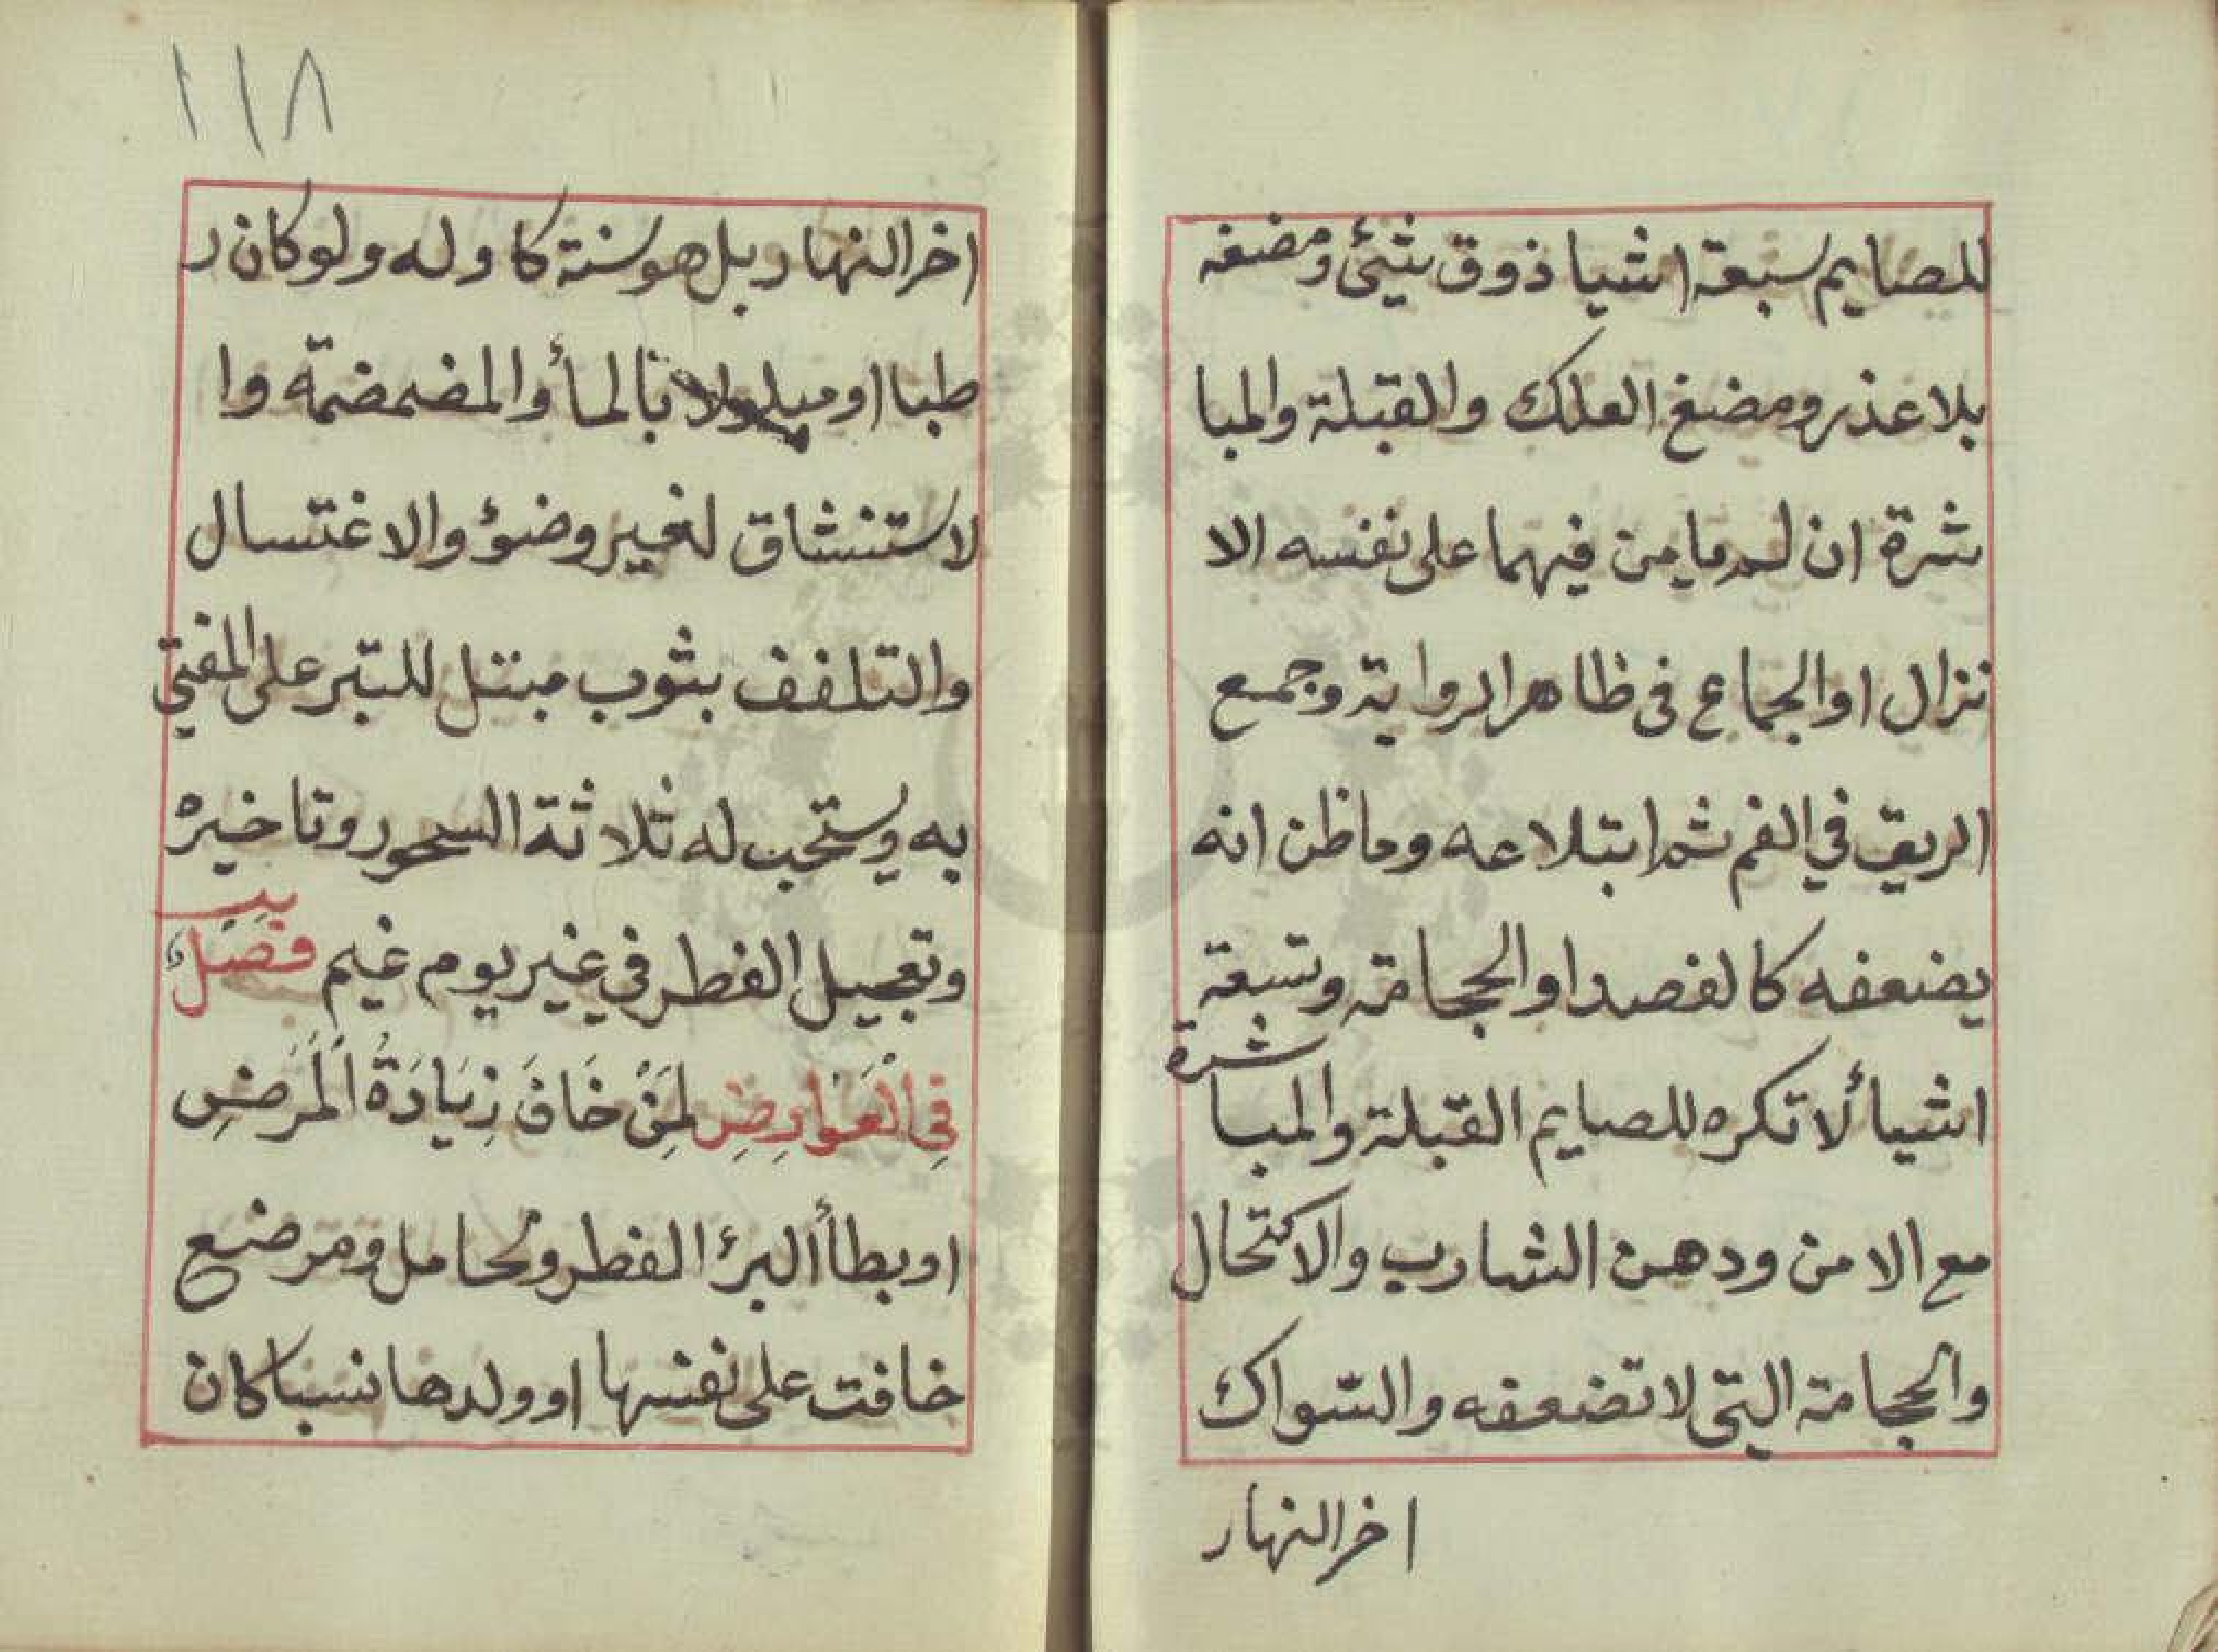 للصايم سبعة اشيا ذوق شيئ ومضغه
بلا عذر ومضغ العلك والقبلة والمبا
شرة ان لم يامن فيهما على نفسه الا
نزال او الجماع فى ظاهر الرواية وجمع
الريق في الفم ثم ابتلاعه وما ظن انه
يضعفه كالفصد او الحجامة وتسعة
اشيأ لا تكره للصايم القبلة والمباشرة
مع الامن ودهن الشارب والاكتحال
والحجامة التى لا تضعفه والسواك
اخر النهار
١١٨
اخر النهار بل هو سنة كاوله ولو كان ر
طبا او مبلولا بالمأ والمضمضمة وا
لاستنشاق لغير وضوؤ والاغتسال
والتلفف بثوب مبتل للتبر على المفتي
به ويستحب له ثلاثة السحور وتاخيره
وتعجيل الفطر في غير يوم غيم فصل
فِي الْعَوارِضِ لِمَنْ خَافَ زِيَادَةُ اَلْمَرَضِ
او بطأ البرء الفطر ولحامل ومرضع
خافت على نفسها او ولدها نسبا كان